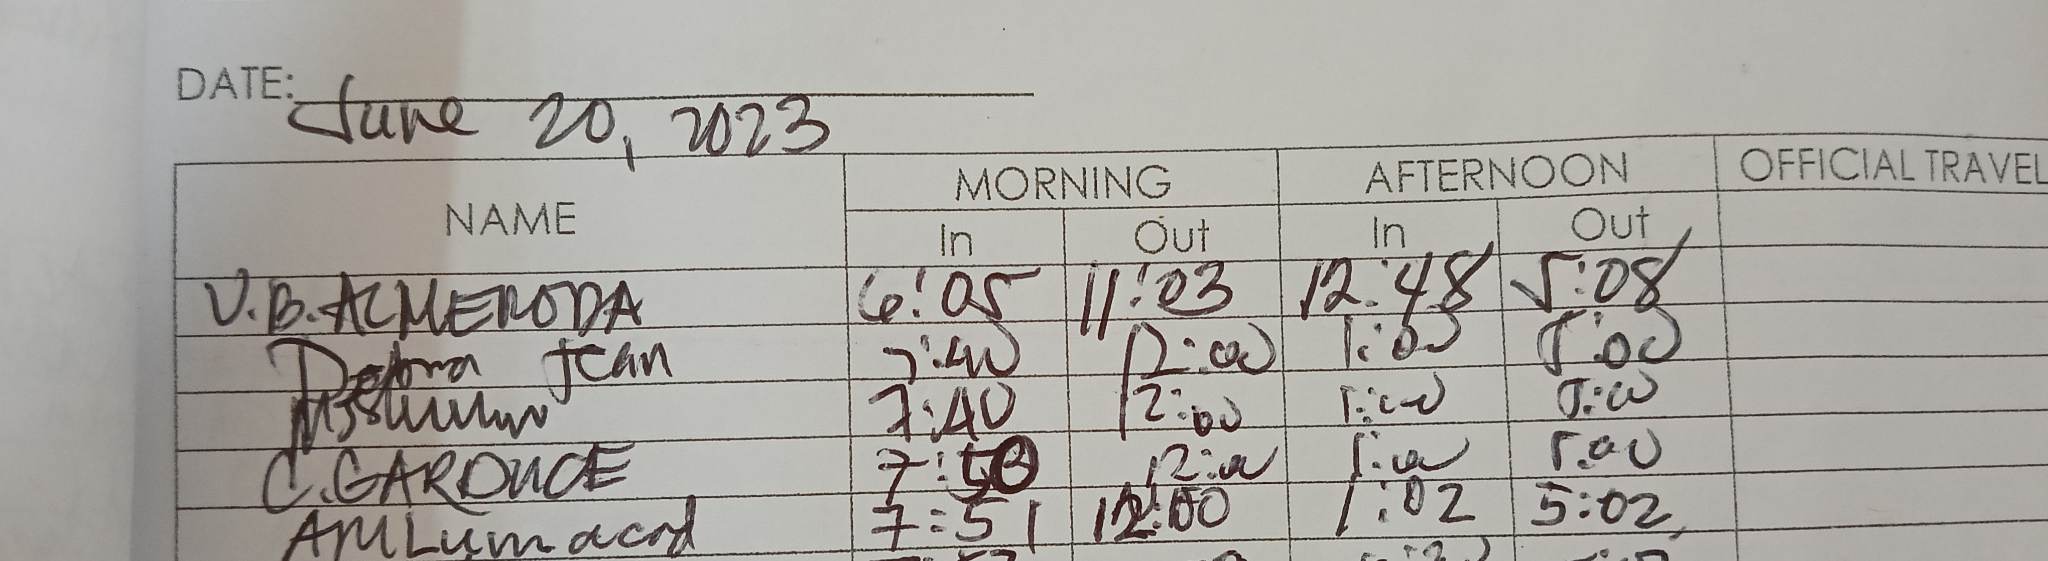 DATE: June 20, 2023
NAME MORNING AFTERNOON OFFICIAL TRAVEL
In Out In Out
V.B. ALMERODA 6:05 11:03 12:48 5:08
Jean 7:40 12:00 1:00 5:00
7:40 12:00 1:00 5:00
C. GARDUCE 7:50 12:00 1:00 5:00
AMLumacad 7:51 12:00 1:02 5:02